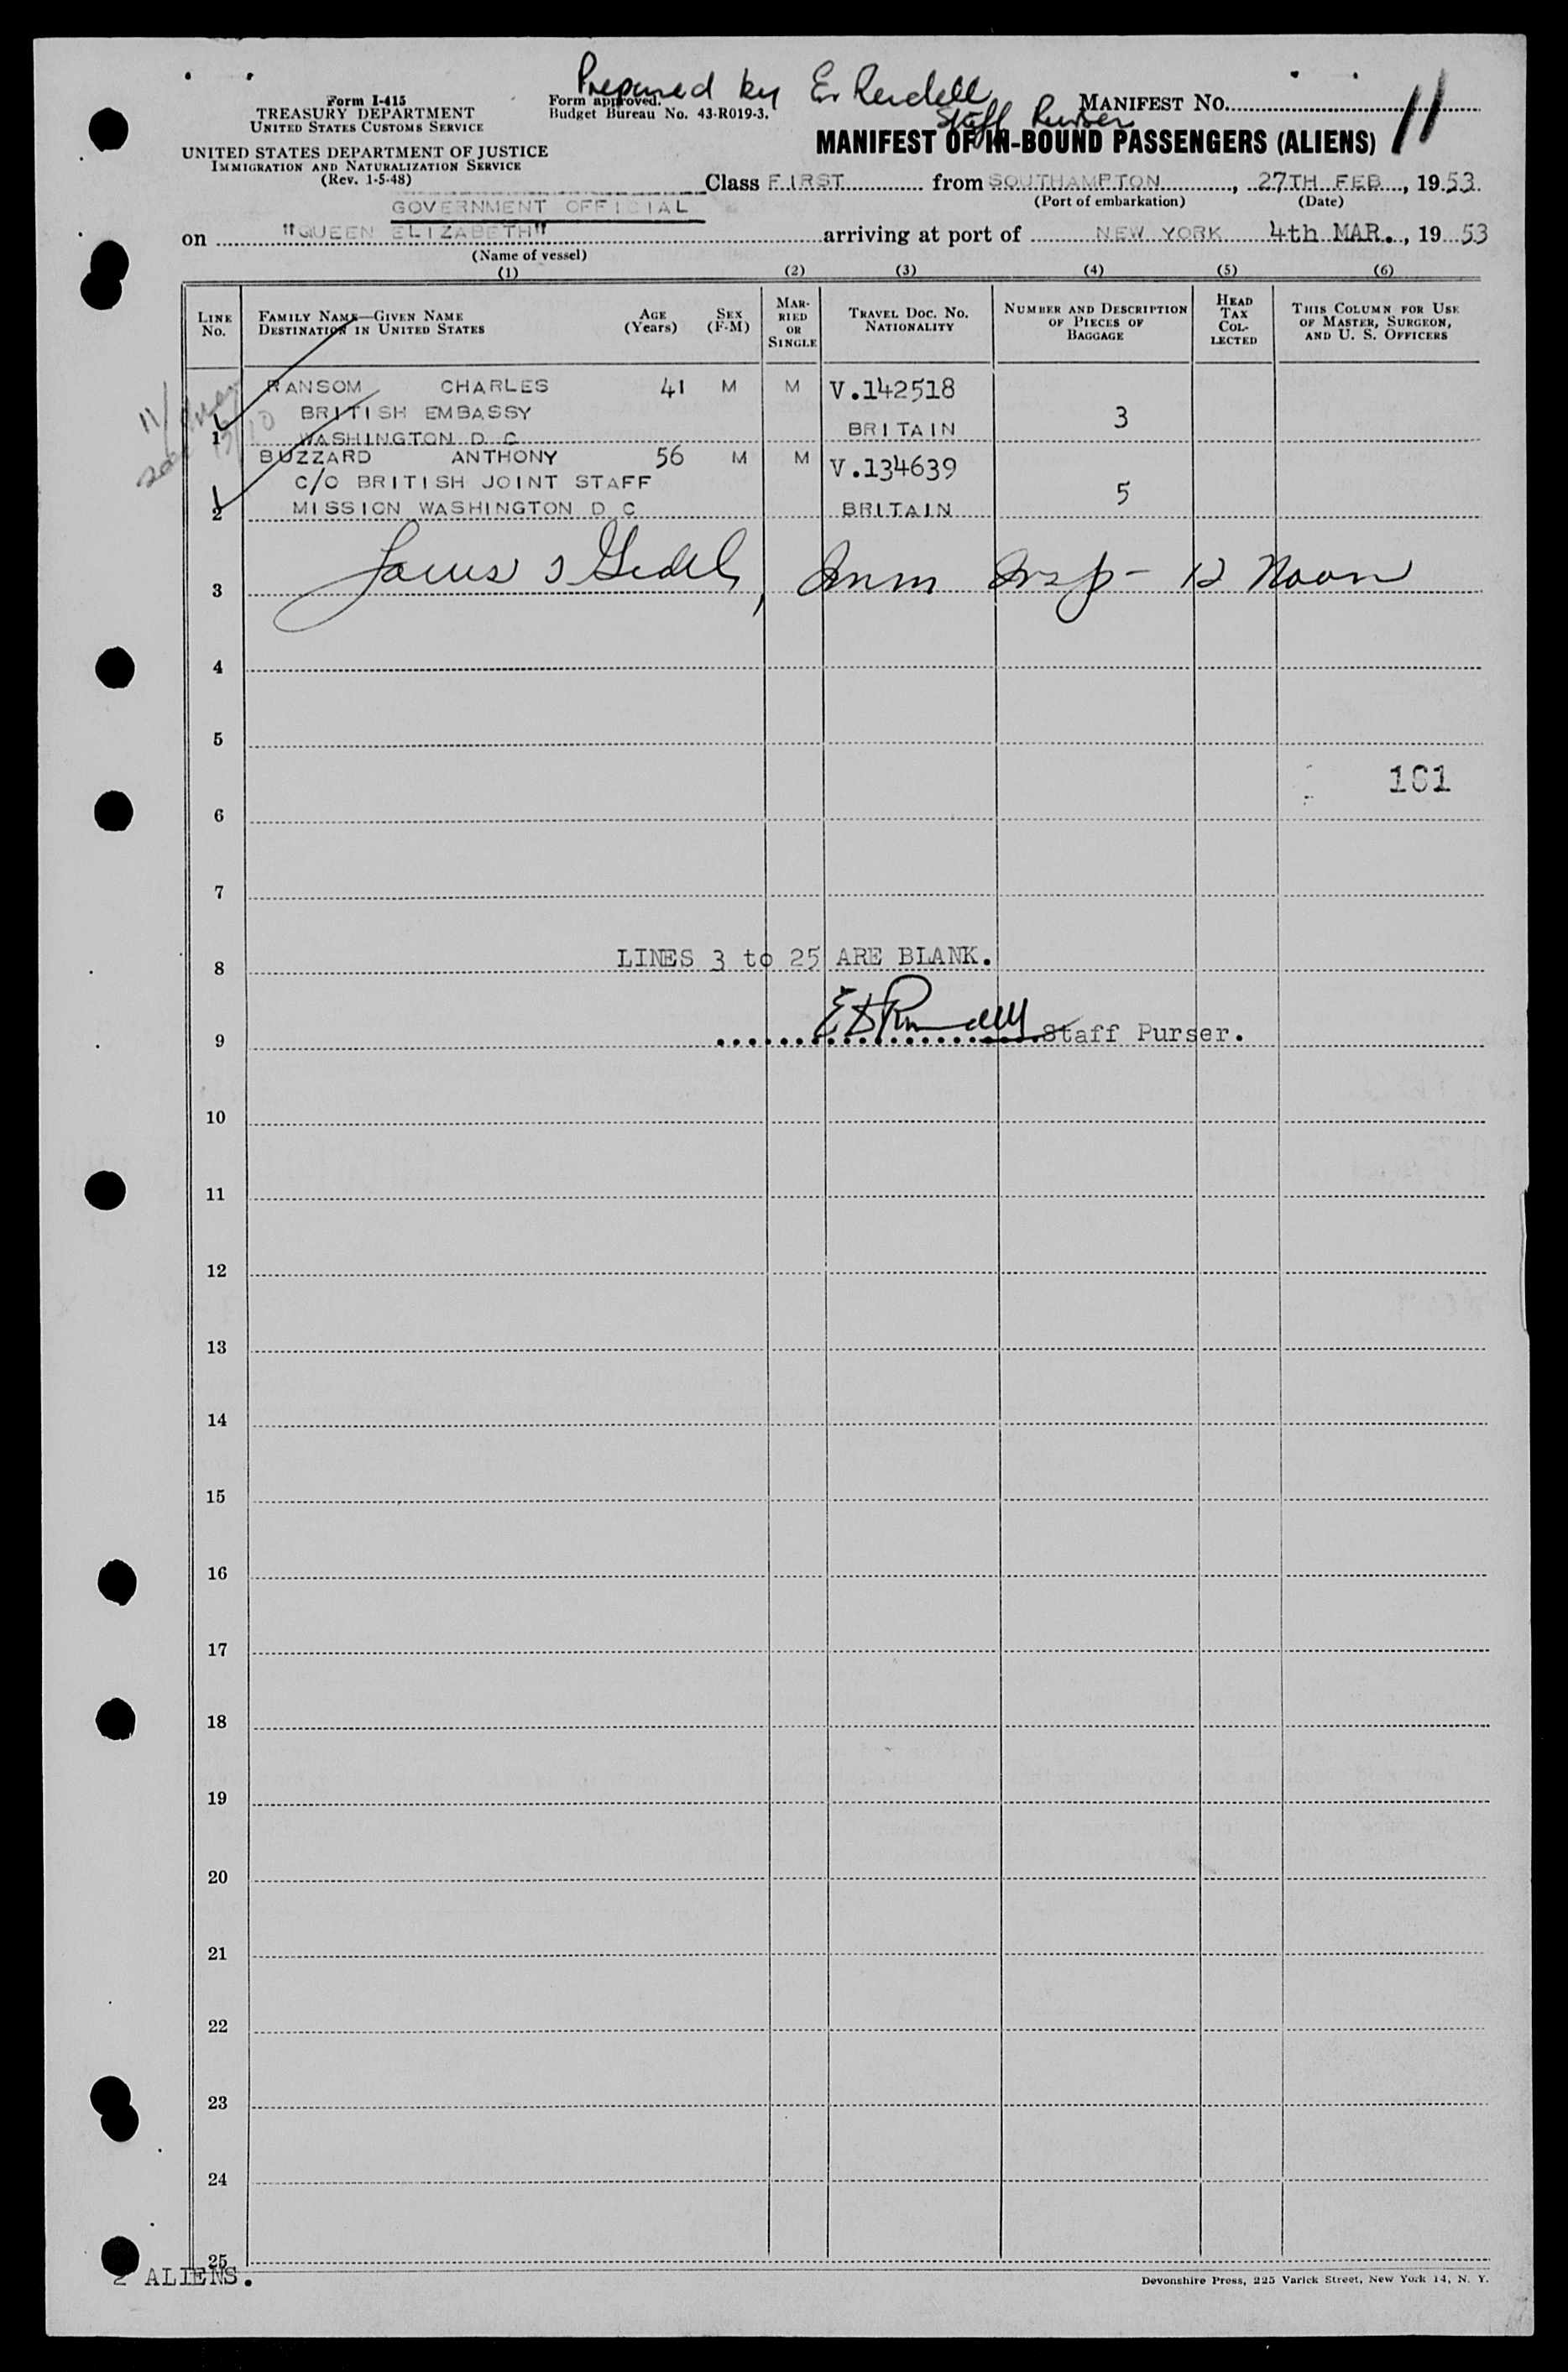 Prepared by E. Rendell
Staff Purser
Form I-415
TREASURY DEPARTMENT
UNITED STATES CUSTOMS SERVICE
UNITED STATES DEPARTMENT OF JUSTICE
IMMIGRATION AND NATURALIZATION SERVICE
(Rev. 1-5-48)
Form approved.
Budget Bureau No. 43-R019-3.
MANIFEST No. 11
MANIFEST OF IN-BOUND PASSENGERS (ALIENS)
Class FIRST from SOUTHAMPTON, 27TH FEB, 1953
(Port of embarkation) (Date)
GOVERNMENT OFFICIAL
on "QUEEN ELIZABETH" arriving at port of NEW YORK 4th MAR., 1953
(Name of vessel)
(1) (2) (3) (4) (5) (6)
LINE No. FAMILY NAME—GIVEN NAME DESTINATION IN UNITED STATES AGE (Years) SEX (F-M) MARRIED OR SINGLE TRAVEL DOC. No. NATIONALITY NUMBER AND DESCRIPTION OF PIECES OF BAGGAGE HEAD TAX COLLECTED THIS COLUMN FOR USE OF MASTER, SURGEON, AND U. S. OFFICERS
RANSOM CHARLES 41 M M V.142518
BRITISH EMBASSY 3
1 WASHINGTON D C BRITAIN
BUZZARD ANTHONY 56 M M V.134639
C/O BRITISH JOINT STAFF 5
2 MISSION WASHINGTON D C BRITAIN
3 Imm Insp - 12 Noon
4
5
101
6
7
8 LINES 3 to 25 ARE BLANK.
9 Staff Purser.
10
11
12
13
14
15
16
17
18
19
20
21
22
23
24
25
2 ALIENS.
Devonshire Press, 225 Varick Street, New York 14, N. Y.